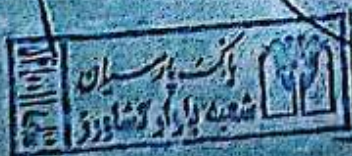 بانک پارسیان
شعبه بلوار کشاورز